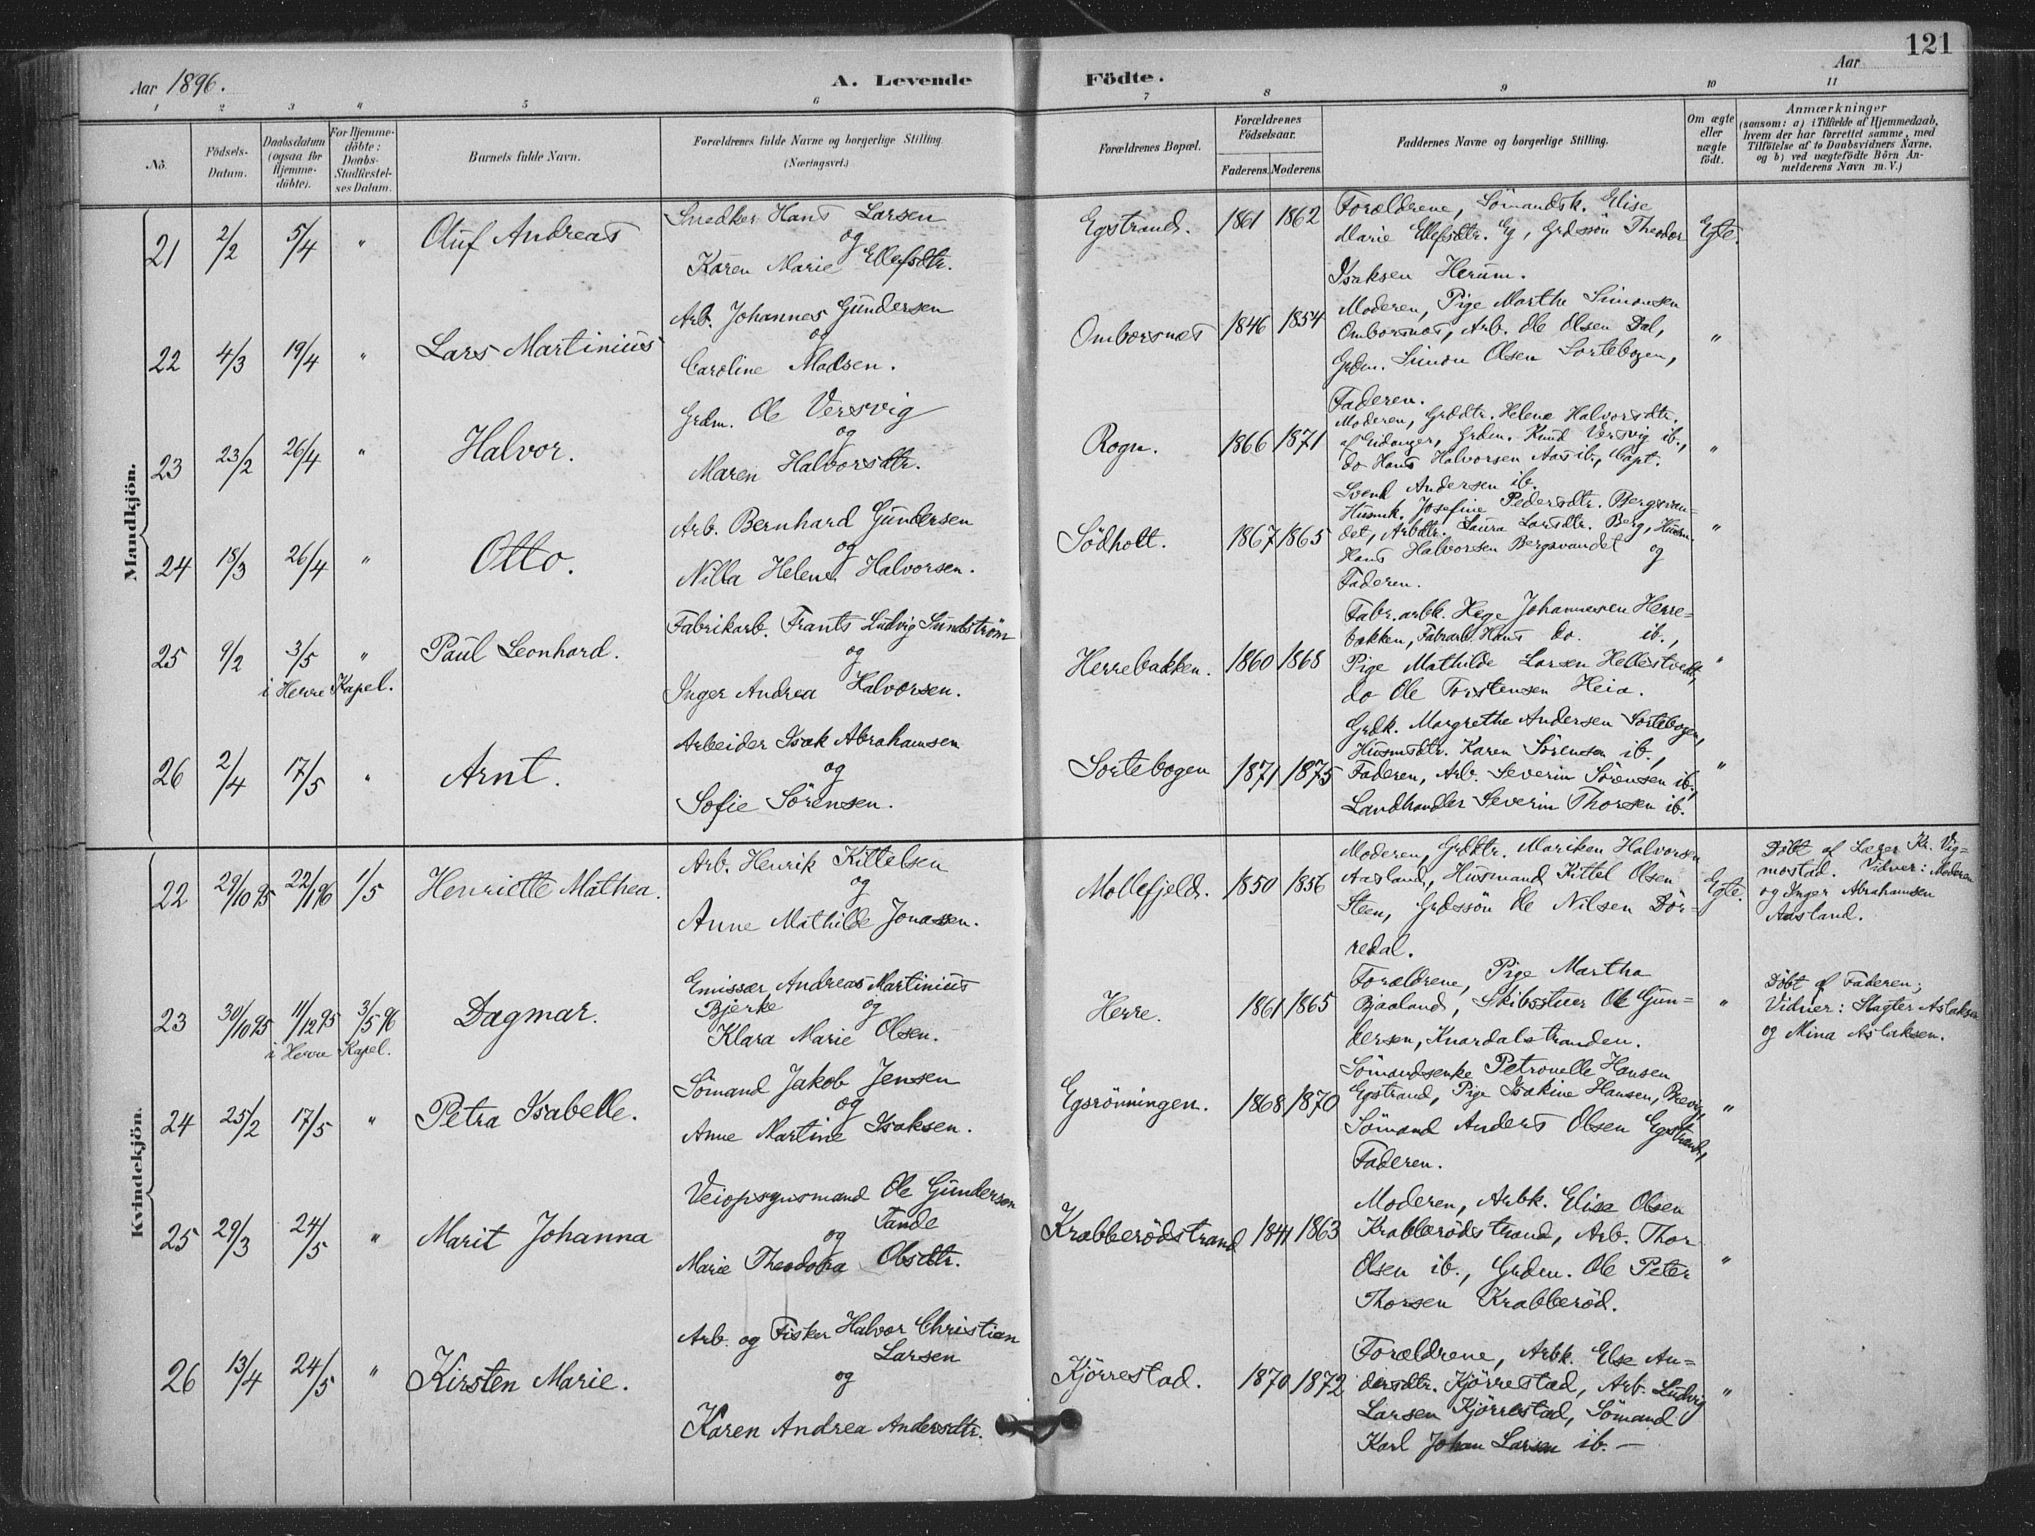 121
Aar 1896.
A. Levende Födte.
Aar
1 2 3 " 5 6 7 8 9 10 11
No.
Födsels-
Datum.
Daabsdatum
(ogsaa for
Hjemme-
döbte).
For Hjemme-
döbte:
Daabs-
Stadfæstel-
ses Datum.
Barnets fulde Navn.
Forældrenes fulde Navne og borgerlige Stilling
(Næringsvei.)
Forældrenes Bopæl.
Forældrenes
Födselsaar.
Faderens. Moderens.
Faddernes Navne og borgerlige Stilling.
Om ægte
eller
uægte
födt.
Anmærkninger
(saasom: a) i Tilfælde af Hjemmedaab,
hvem der har forrettet samme, med
Tilföielse af to Daabsvidners Navne,
og b) ved uægtefödte Börn An-
melderens Navn m. V.)
Mandkjön.
21 2/2 5/4 " Oluf Andreas
Snedker Hans Larsen
og
Karen Marie Ellefsdtr.
Egstrand. 1861 1862
Forældrene, Sömandsk. Elise
Marie Ellefsdtr. Eg, Grdssön Theodor
Isaksen Herum.
Egte.
22 4/3 19/4 " Lars Martinius
Arb. Johannes Gundersen
og
Caroline Madsen.
Omborsnes 1846 1854
Moderen, Pige Marthe Simonsen
Omborsnes, Arb. Ole Olsen Dal,
Grdm. Simon Olsen Sortebogen,
Faderen.
"
23 23/2 26/4 " Halvor.
Grdm. Ole Versvig
og
Maren Halvorsdtr.
Rogn. 1866 1871
Moderen, Grddtr. Helene Halvorsdtr.
af Eidanger, Grdm. Knud Versvig ib.,
do Hans Halvorsen Aas ib., Capt.
Svend Andersen ib.
"
24 18/3 26/4 " Otto.
Arb. Bernhard Gundersen
og
Nilla Helene Halvorsen.
Södholt. 1867 1865
Husmk. Josefine Pedersdtr. Bergsvan-
det, Arbdtr. Laura Larsdtr. Berg, Husm.
Hans Halvorsen Bergsvandet og
Faderen.
"
25 9/2 3/5 " Paul Leonhard.
i Herre Kapel.
Fabrikarb. Frants Ludvig Sundström
og
Inger Andrea Halvorsen.
Herrebakken. 1860 1868
Fabr.arbk. Hege Johannesen Herre-
bakken, Fabrarb. Hans do. ib.,
Pige Mathilde Larsen Hellestvedt,
do Ole Torstensen Heia.
"
26 2/4 17/5 " Arnt.
Arbeider Isak Abrahamsen
og
Sofie Sörensen.
Sortebogen 1871 1875
Grdk. Margrethe Andersen Sortebogen,
Husmdtr. Karen Sörensen ib.,
Faderen, Arb. Severin Sörensen ib.,
Landhandler Severin Thorsen ib.
"
Kvindekjön.
22 29/10 95 22/1 96 1/5 Henriette Mathea.
Arb. Henrik Kittelsen
og
Anne Mathilde Jonassen.
Mollefjeld. 1850 1856
Moderen, Grddtr. Mariken Halvorsen
Aasland, Husmand Kittel Olsen
Steen, Grdssön Ole Nilsen Dör-
redal.
Egte.
Döbt af Lærer Kr. Vig-
mostad. Vidner: Moderen
og Inger Abrahamsen
Aasland.
23 30/10 95 11/12 95 3/5 96 Dagmar.
i Herre Kapel.
Emissær Andreas Martinius
Bjerke og
Klara Marie Olsen.
Herre. 1861 1865
Forældrene, Pige Martha
Bjaaland, Skibsstuer Ole Gun-
dersen, Knardalstranden.
"
Döbt af Faderen;
Vidner: Slagter Aslaksen
og Mina Aslaksen.
24 25/2 17/5 " Petra Isabelle.
Sömand Jakob Jensen
og
Anne Martine Isaksen.
Egsrönningen. 1868 1870
Sömandsenke Petronelle Hansen
Egstrand, Pige Isakine Hansen, Brevig,
Sömand Anders Olsen Egstrand,
Faderen.
"
25 29/3 24/5 " Marit Johanna
Veiopsynsmand Ole Gundersen
Tande
og
Marie Theodora Olsdtr.
Krabberödstrand 1841 1863
Moderen, Arbk. Elise Olsen
Krabberödstrand, Arb. Thor
Olsen ib., Grdm. Ole Peter
Thorsen Krabberöd.
"
26 13/4 24/5 " Kirsten Marie.
Arb. og Fisker Halvor Christian
Larsen
og
Karen Andrea Andersdtr.
Kjörrestad. 1870 1872
Forældrene, Arbk. Else An-
dersdtr. Kjörrestad, Arb. Ludvig
Larsen Kjörrestad, Sömand
Karl Johan Larsen ib. —
"